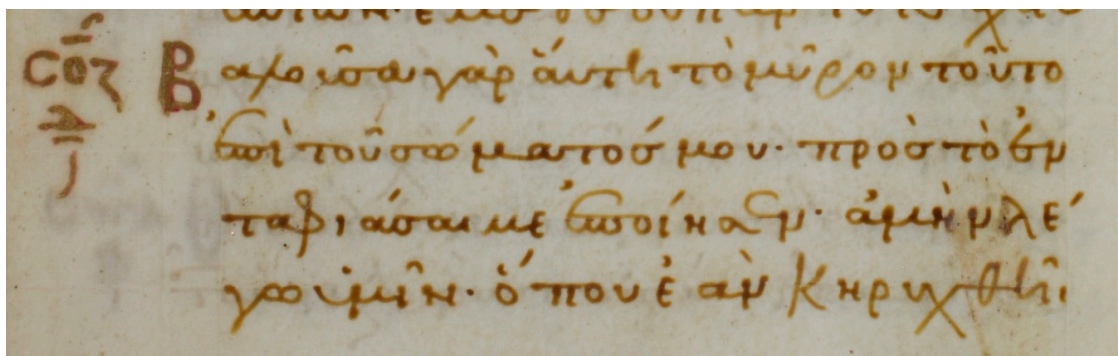 σοζ Βαλοῦσα γὰρ ἅυτη τὸ μῦρον τοῦτο
ἐπὶ τοῦ σώματοσ μου· πρὸσ τὸ ἐν
ταφιάσαι με ἐποίησεν· ἀμὴν λέ
γω ὑμῖν· ὅπου ἐὰν κηρυχθῆ